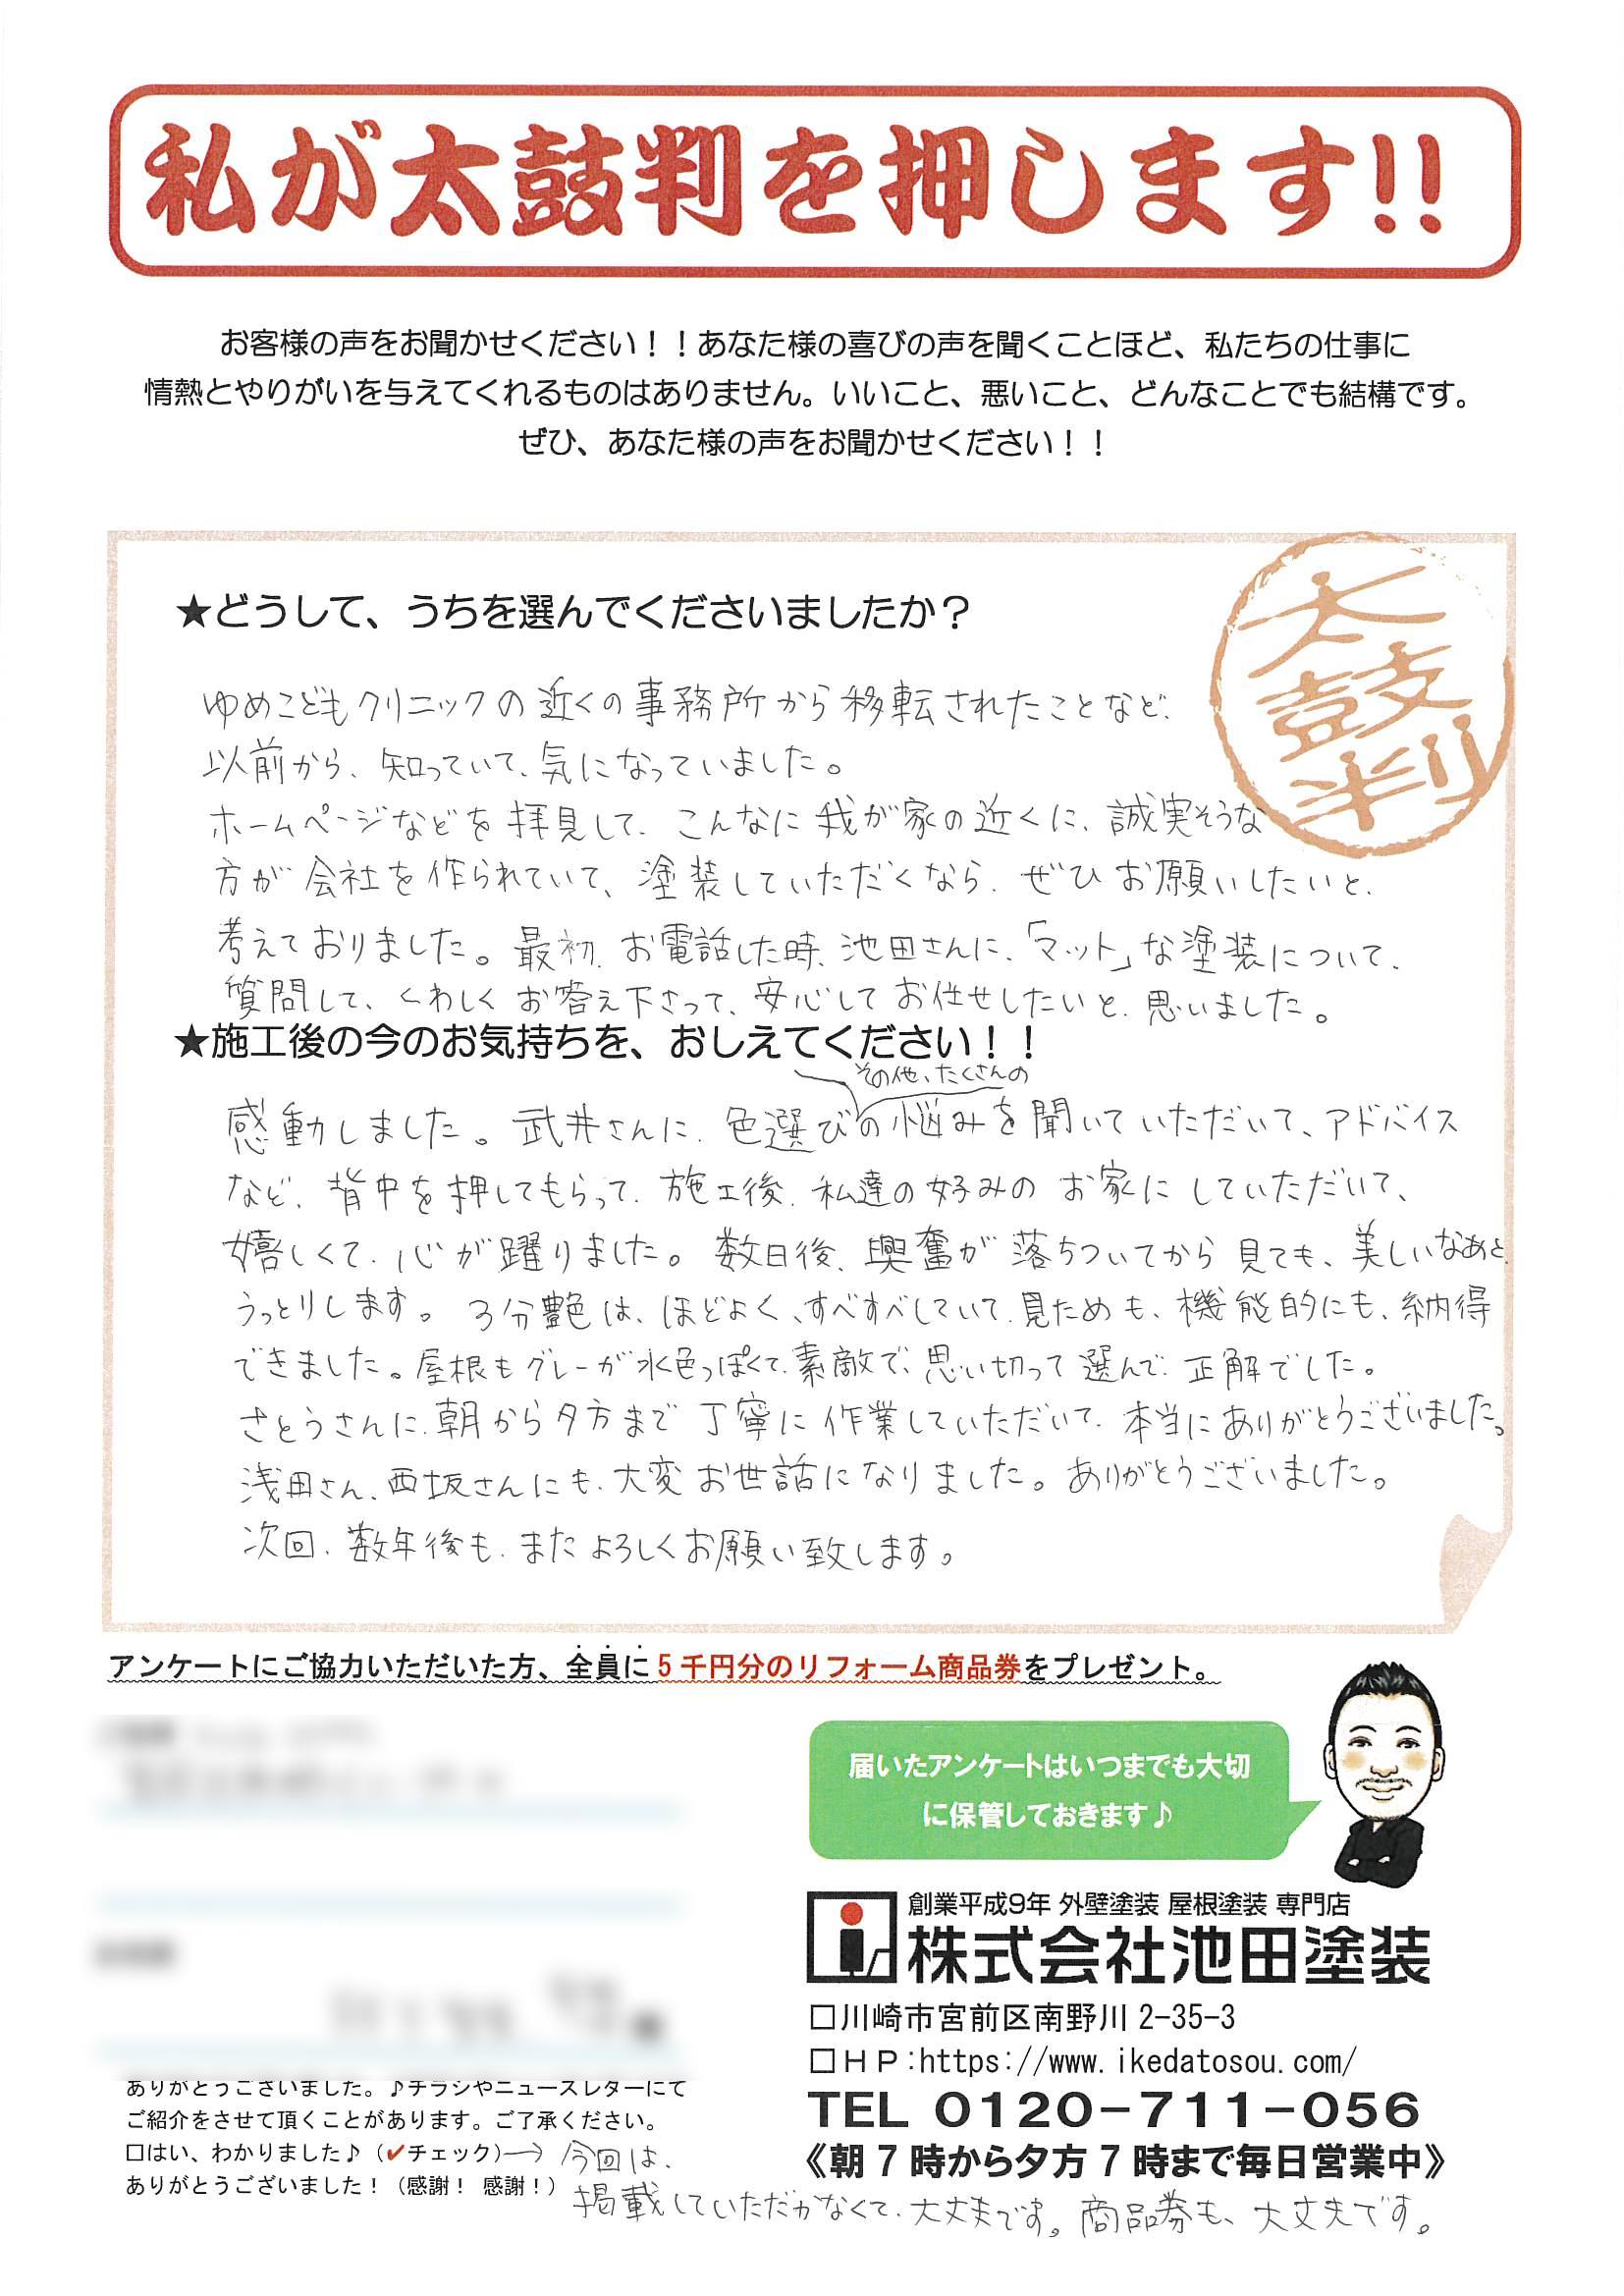 私が太鼓判を押します!!
お客様の声をお聞かせください！！あなた様の喜びの声を聞くことほど、私たちの仕事に
情熱とやりがいを与えてくれるものはありません。いいこと、悪いこと、どんなことでも結構です。
ぜひ、あなた様の声をお聞かせください！！
太鼓判
★どうして、うちを選んでくださいましたか？
ゆめこどもクリニックの近くの事務所から移転されたことなど、
以前から、知っていて、気になっていました。
ホームページなどを拝見して、こんなに我が家の近くに、誠実そうな
方が会社を作られていて、塗装していただくなら、ぜひお願いしたいと、
考えておりました。最初、お電話した時、池田さんに、「マット」な塗装について、
質問して、くわしくお答え下さって、安心してお任せしたいと、思いました。
★施工後の今のお気持ちを、おしえてください！！
その他、たくさんの
感動しました。武井さんに、色選びの悩みを聞いていただいて、アドバイス
など、背中を押してもらって、施工後、私達の好みのお家にしていただいて、
嬉しくて、心が躍りました。数日後、興奮が落ちついてから見ても、美しいなあと、
うっとりします。3分艶は、ほどよく、すべすべしていて、見ためも、機能的にも、納得
できました。屋根もグレーが水色っぽくて、素敵で、思い切って選んで、正解でした。
さとうさんに、朝から夕方まで丁寧に作業していただいて、本当にありがとうございました。
浅田さん、西坂さんにも、大変お世話になりました。ありがとうございました。
次回、数年後も、またよろしくお願い致します。
アンケートにご協力いただいた方、全員に5千円分のリフォーム商品券をプレゼント。
届いたアンケートはいつまでも大切
に保管しておきます♪
創業平成9年 外壁塗装 屋根塗装 専門店
株式会社池田塗装
□川崎市宮前区南野川2-35-3
□ＨＰ:https://www.ikedatosou.com/
TEL 0120-711-056
《朝7時から夕方7時まで毎日営業中》
ありがとうございました。♪チラシやニュースレターにて
ご紹介をさせて頂くことがあります。ご了承ください。
□はい、わかりました♪（✔チェック）→ 今回は、
ありがとうございました！（感謝！ 感謝！）
掲載していただかなくて、大丈夫です。商品券も、大丈夫です。